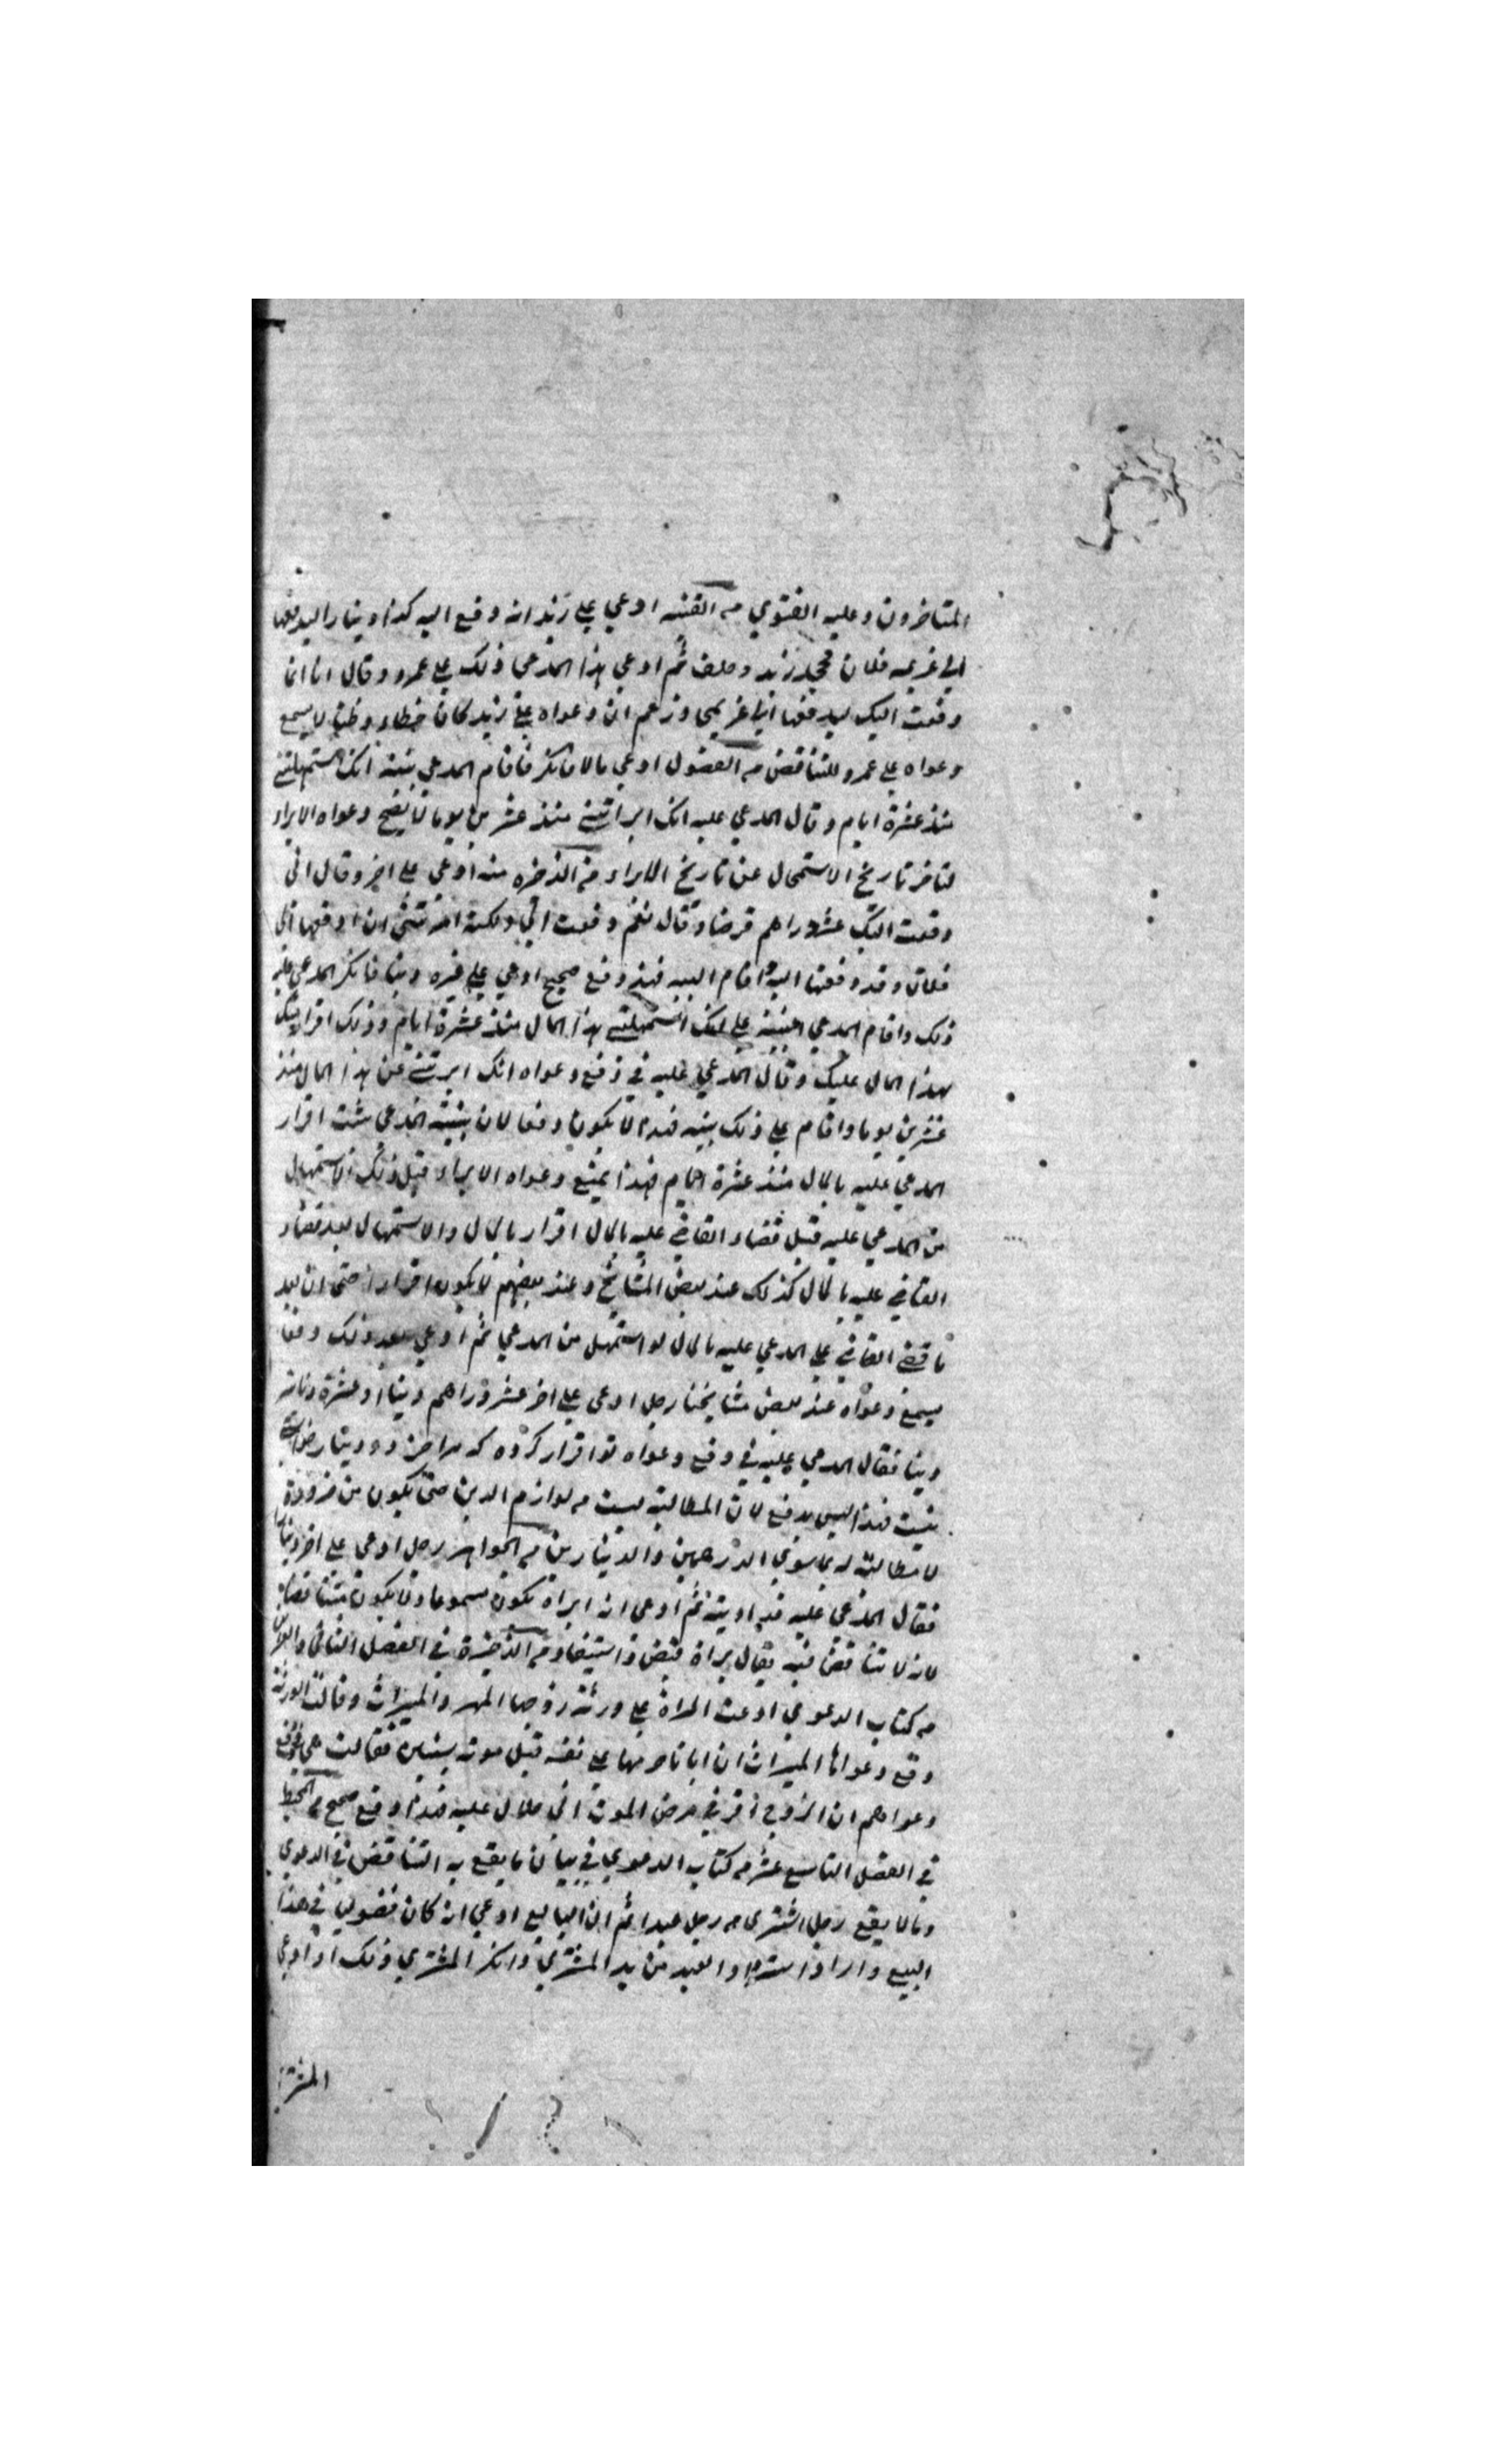 المتاخرون وعليه الفتوي من القنيه ادعي علي زيد انه دفع اليه كذا دينار اليدفعها
الي غريمه فلان فجحد زيد وحلف ثم ادعي هذا المدعي ذلك علي عمرو وقال انا انما
دفعت اليك ليدفعها الي غريمي وزعم ان دعواه علي زيد كان خطاء وظنا لا يسمع
دعواه علي عمرو للتناقض من الفصول ادعي مالا فانكر فاقام المدعي بينة انك استمهلتني
منذ عشرة ايام وقال المدعي عليه انك ابراتني منذ عشرين يوما لا يصح دعواه الابراء
لتاخر تاريخ الاستمهال عن تاريخ الابراء من الذخيره منه ادعي علي اخر وقال اني
دفعت اليك عشر دراهم قرضا وقال نعم دفعت الي ولكنك امرتني ان ادفعها الي
فلان وقد دفعتها اليه واقام البينه فهذا دفع صحيح ادعي علي غيره دينا فانكر المدعي عليه
ذلك واقام المدعي البينة علي انك استمهلتني هذا المال منذ عشرة ايام وذلك اقرار منك
بهذا المال عليك وقال المدعي عليه في دفع دعواه انك ابرتني عن هذا المال منذ
عشرين يوما واقام علي ذلك بينه فهذا لا يكون دفعا لان بينة المدعي يثبت اقرار
المدعي عليه بالمال منذ عشرة ايام فهذا يمنع دعواه الابراء قبل ذلك الاستمهال
من المدعي عليه قبل قضاء القاضي عليه بالمال اقرار بالمال والاستمهال بعد قضاء
القاضي عليه بالمال كذلك عند بعض المشايخ وعند بعضهم لا يكون اقرارا حتي ان بعد
ما قضي القاضي علي المدعي عليه بالمال لو استمهل من المدعي ثم ادعي بعد ذلك دفعا
يسمع دعواه عند بعض مشايخنا رجل ادعي علي اخر عشر دراهم دينا او عشرة دنانير
دينا فقال المدعي عليه في دفع دعواه تو اقرار كرده كه مرا جز دو دينار
نيست فهذا ليس بدفع لان المطالبة ليست من لوازم الدين حتي يكون من ضرورة
لا مطالبة له بما سوي الدرهمين والدينارين من الجواهر رجل ادعي علي اخر دينا
فقال المدعي عليه قد اديته ثم ادعي انه ابراه يكون مسموعا ولا يكون متناقضا
لانه لا تناقض فيه يقال براة قبض واستيفاء من الذخيرة في الفصل الثاني والعشرين
من كتاب الدعوي ادعت المراة علي ورثة زوجها المهر والميراث وقالت الورثة
دفع دعواها الميراث ان ابانا حرمها علي نفسه قبل موته بسنين فقالت هي في دفع
دعواهم ان الزوج اقر في مرض الموت اني حلال عليه فهذا دفع صحيح من المحيط
في الفصل التاسع عشر من كتاب الدعوي في بيان ما يقع به التناقض في الدعوي
وما لا يقع رجل اشتري من رجل عبدا ثم ان البايع ادعي انه كان فضولي في هذا
البيع واراد استرداد العبد من يد المشتري وانكر المشتري ذلك او ادعي
المشتري